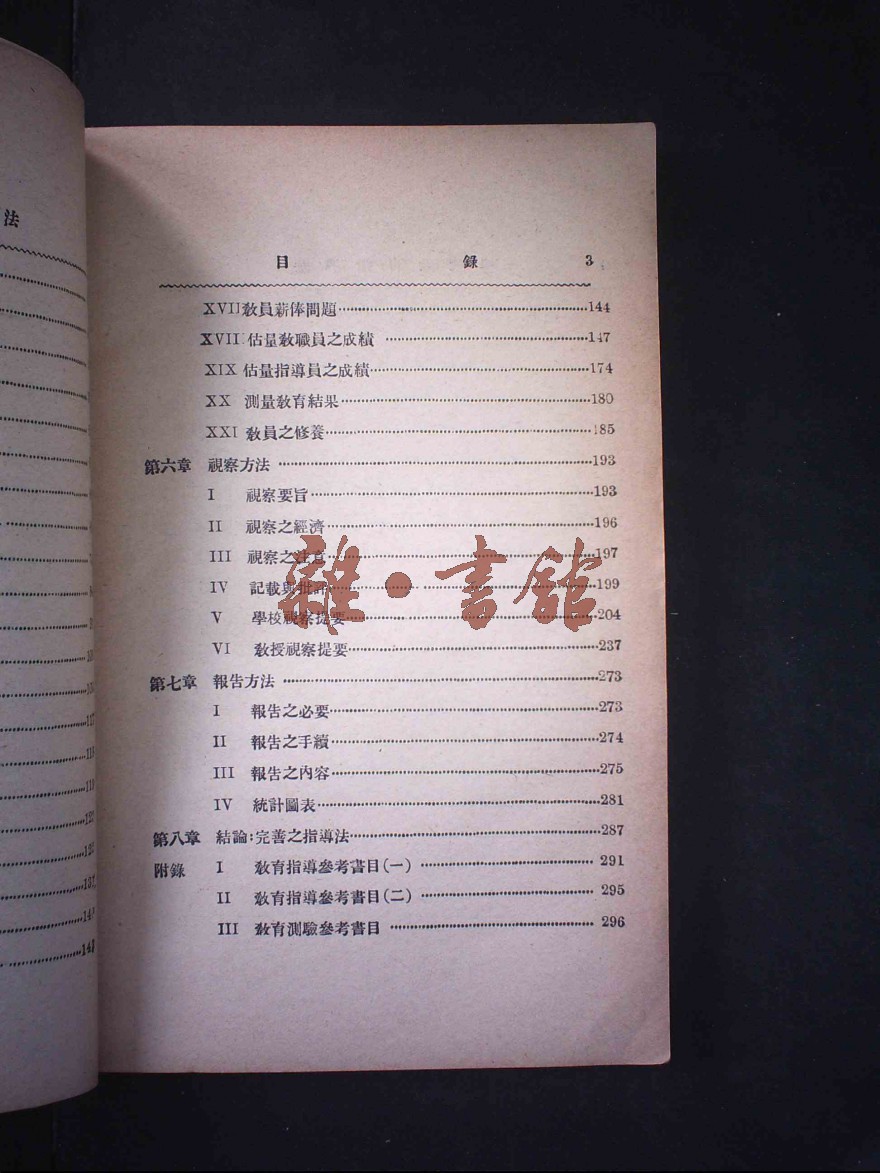 法
目 錄 3
XVII 教員薪俸問題 144
XVIII 估量教職員之成績 147
XIX 估量指導員之成績 174
XX 測量教育結果 180
XXI 教員之修養 185
第六章 視察方法 193
I 視察要旨 193
II 視察之經濟 196
III 視察之注意 197
IV 記載與批評 199
V 學校視察提要 204
VI 教授視察提要 237
第七章 報告方法 273
I 報告之必要 273
II 報告之手續 274
III 報告之內容 275
IV 統計圖表 281
第八章 結論:完善之指導法 287
附錄 I 教育指導參考書目(一) 291
II 教育指導參考書目(二) 295
III 教育測驗參考書目 296
雜·書館